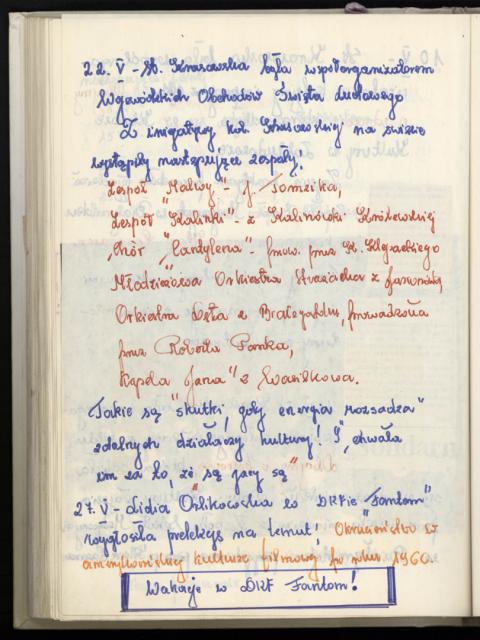 22. V - H. była współorganizatorem
Wojewódzkich Obchodów Święta Ludowego
Z inicjatywy kol. na święcie
wystąpiły następujące zespoły:
Zespół "Malwy" - J. Tomzika,
Zespół "Kalinki" - z Kalinówki
Chór "Cantylena" - prow. przez St.
Młodzieżowa Orkiestra Strażacka z
Orkiestra Dęta z prowadzona
przez Roberta Panka,
Kapela "Jana" z Wasilkowa.
Takie są "skutki, gdy energia rozsadza"
zdolnych działaczy kultury! I "chwała
im za to, że są jacy są"
27. V - Lidia Orlikowska w DKFie "Fantom"
wygłosiła prelekcję na temat: Okrucieństwo w
amerykańskiej kulturze filmowej po roku 1960.
Wakacje w DKF Fantom!